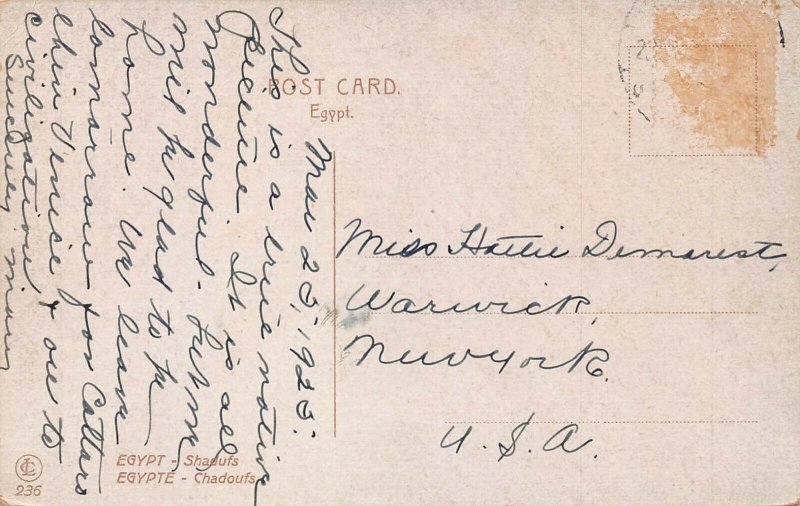 POST CARD.
Egypt.
Mar 23, 1923.
This is a true native
picture. It is all
wonderful. but my
will be glad to be
home. We leave
tomorrow for Cattaro
then Venice & on to
civilization
Sincerely
Miss Hattie Demarest,
Warwick,
New York.
U. S. A.
EGYPT - Shadufs
EGYPTE - Chadoufs
LC
236